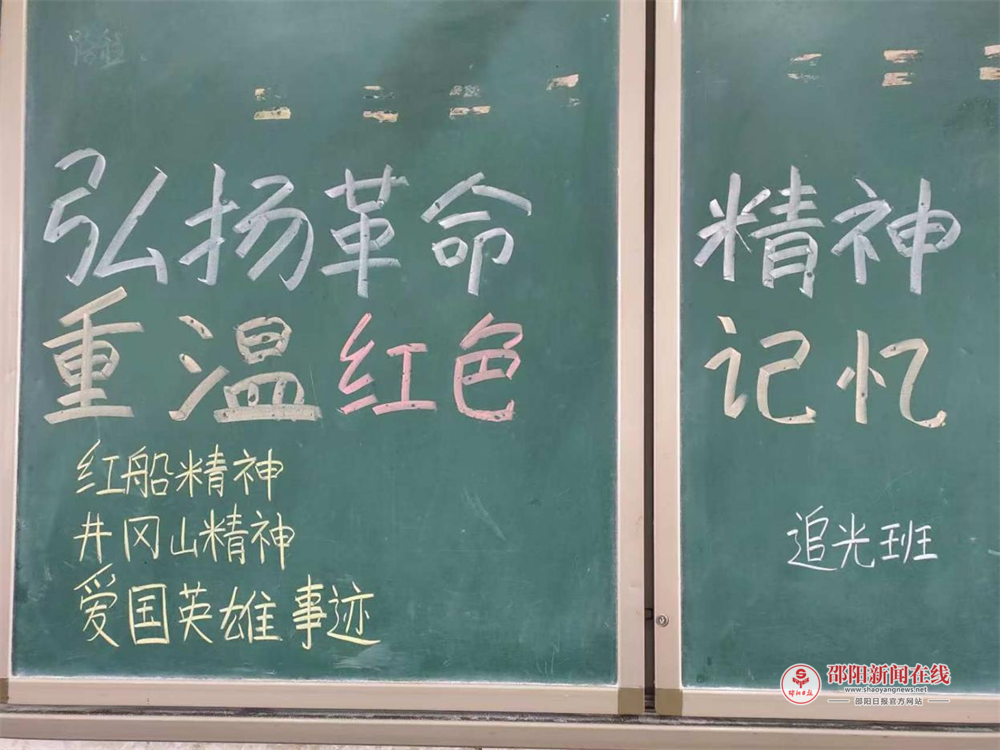 弘扬革命精神
重温红色记忆
红船精神
井冈山精神
爱国英雄事迹
追光班
邵阳新闻在线
www.shaoyangnews.net
邵阳日报官方网站
邵阳日报